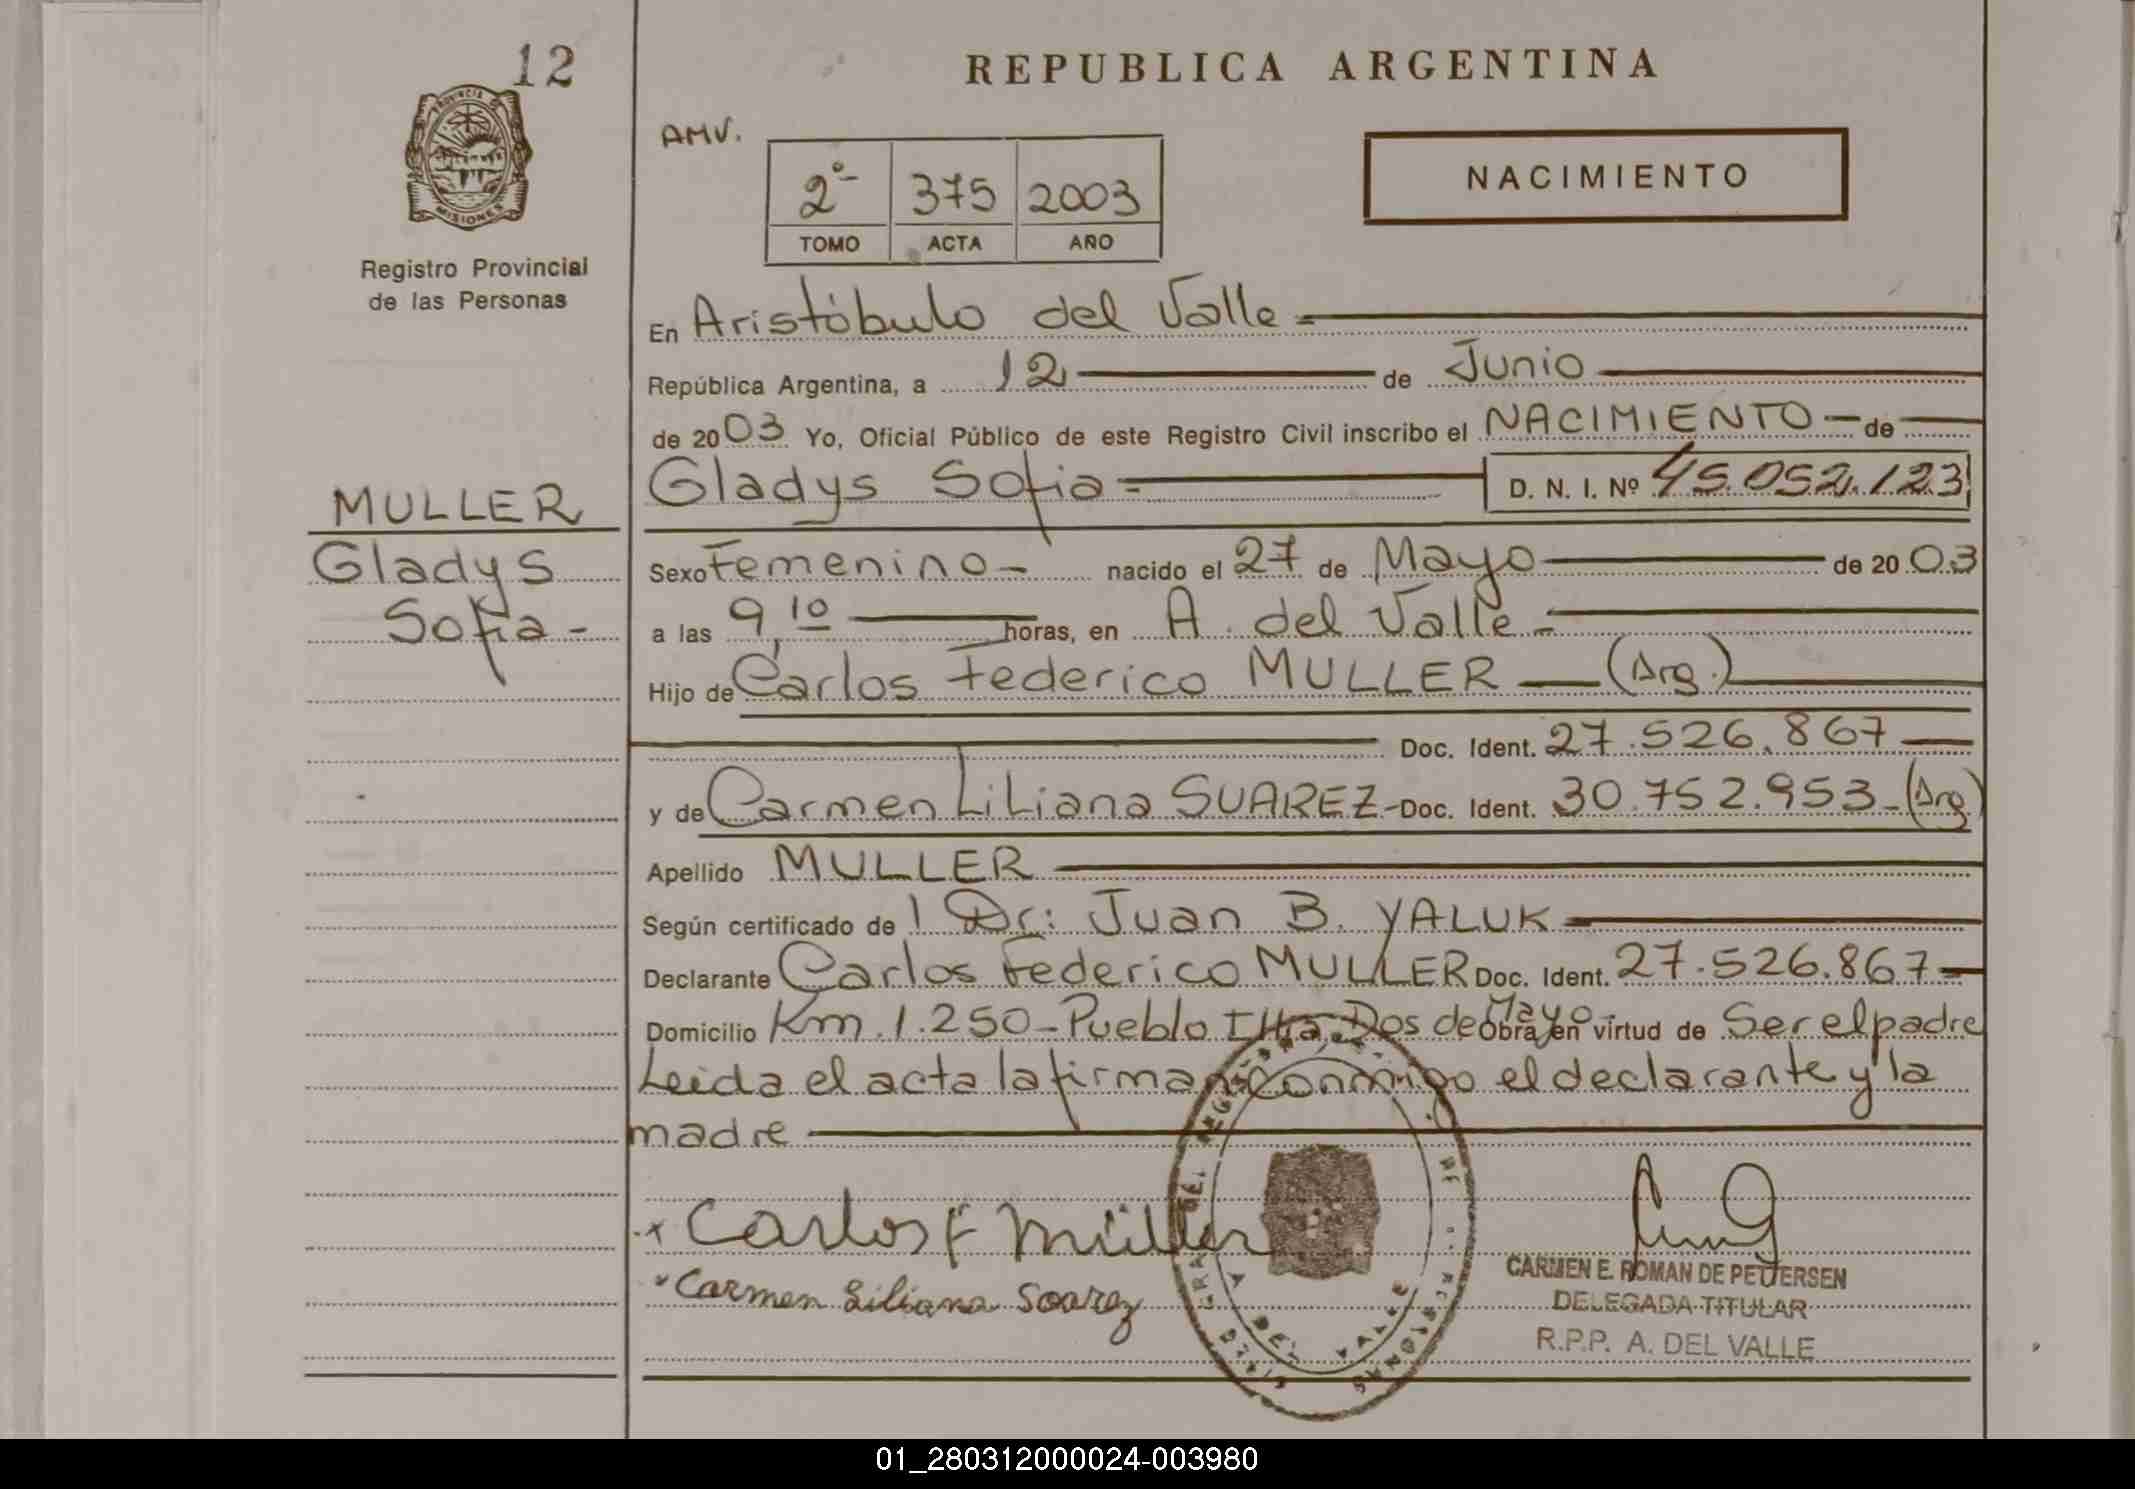 12
PROVINCIA DE
MISIONES
Registro Provincial
de las Personas
MULLER
Gladys
Sofia -
REPUBLICA ARGENTINA
AMV.
2º 375 2003
TOMO ACTA AÑO
NACIMIENTO
En Aristóbulo del Valle
República Argentina, a 12 de Junio
de 2003 Yo, Oficial Público de este Registro Civil inscribo el NACIMIENTO - de
Gladys Sofia D. N. I. Nº 45.052.123
Sexo Femenino - nacido el 27 de Mayo de 2003
a las 9,10 horas, en A. del Valle -
Hijo de Carlos Federico MULLER (Arg.)
Doc. Ident. 27.526.867
y de Carmen Liliana SUAREZ - Doc. Ident. 30.752.953 - (Arg)
Apellido MULLER
Según certificado de l Dr: Juan B. YALUK
Declarante Carlos Federico MULLER Doc. Ident. 27.526.867
Domicilio Km. 1.250 - Pueblo Illia Dos de Mayo Obra en virtud de Ser el padre
Leida el acta la firman conmigo el declarante y la
madre
x Carlos F Müller
Carmen Liliana Soarez
A DEL VALLE
CARMEN E. ROMAN DE PETTERSEN
DELEGADA TITULAR
R.P.P. A. DEL VALLE
01_280312000024-003980